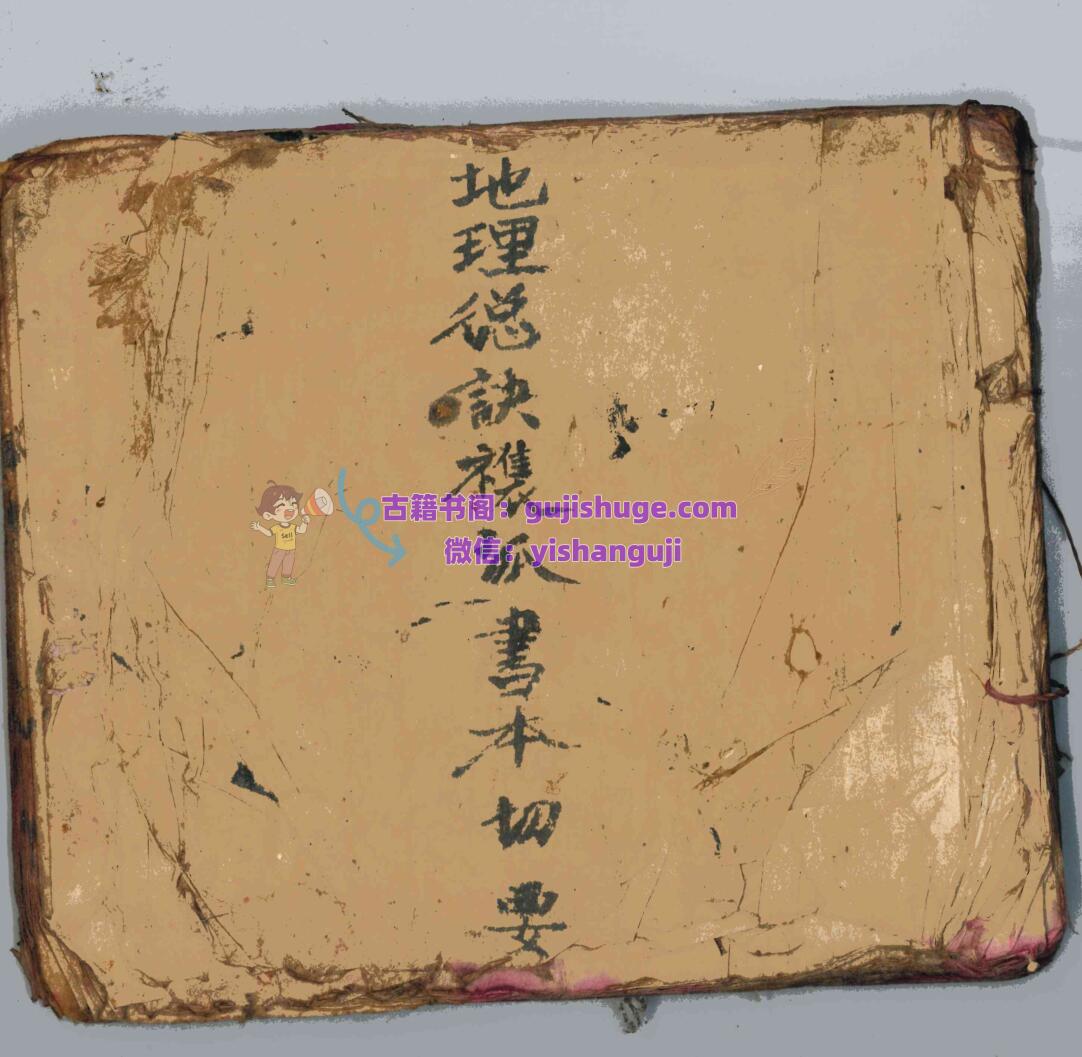 地理総訣襍書本切要
古籍书阁：gujishuge.com
微信：yishanguji
Sell